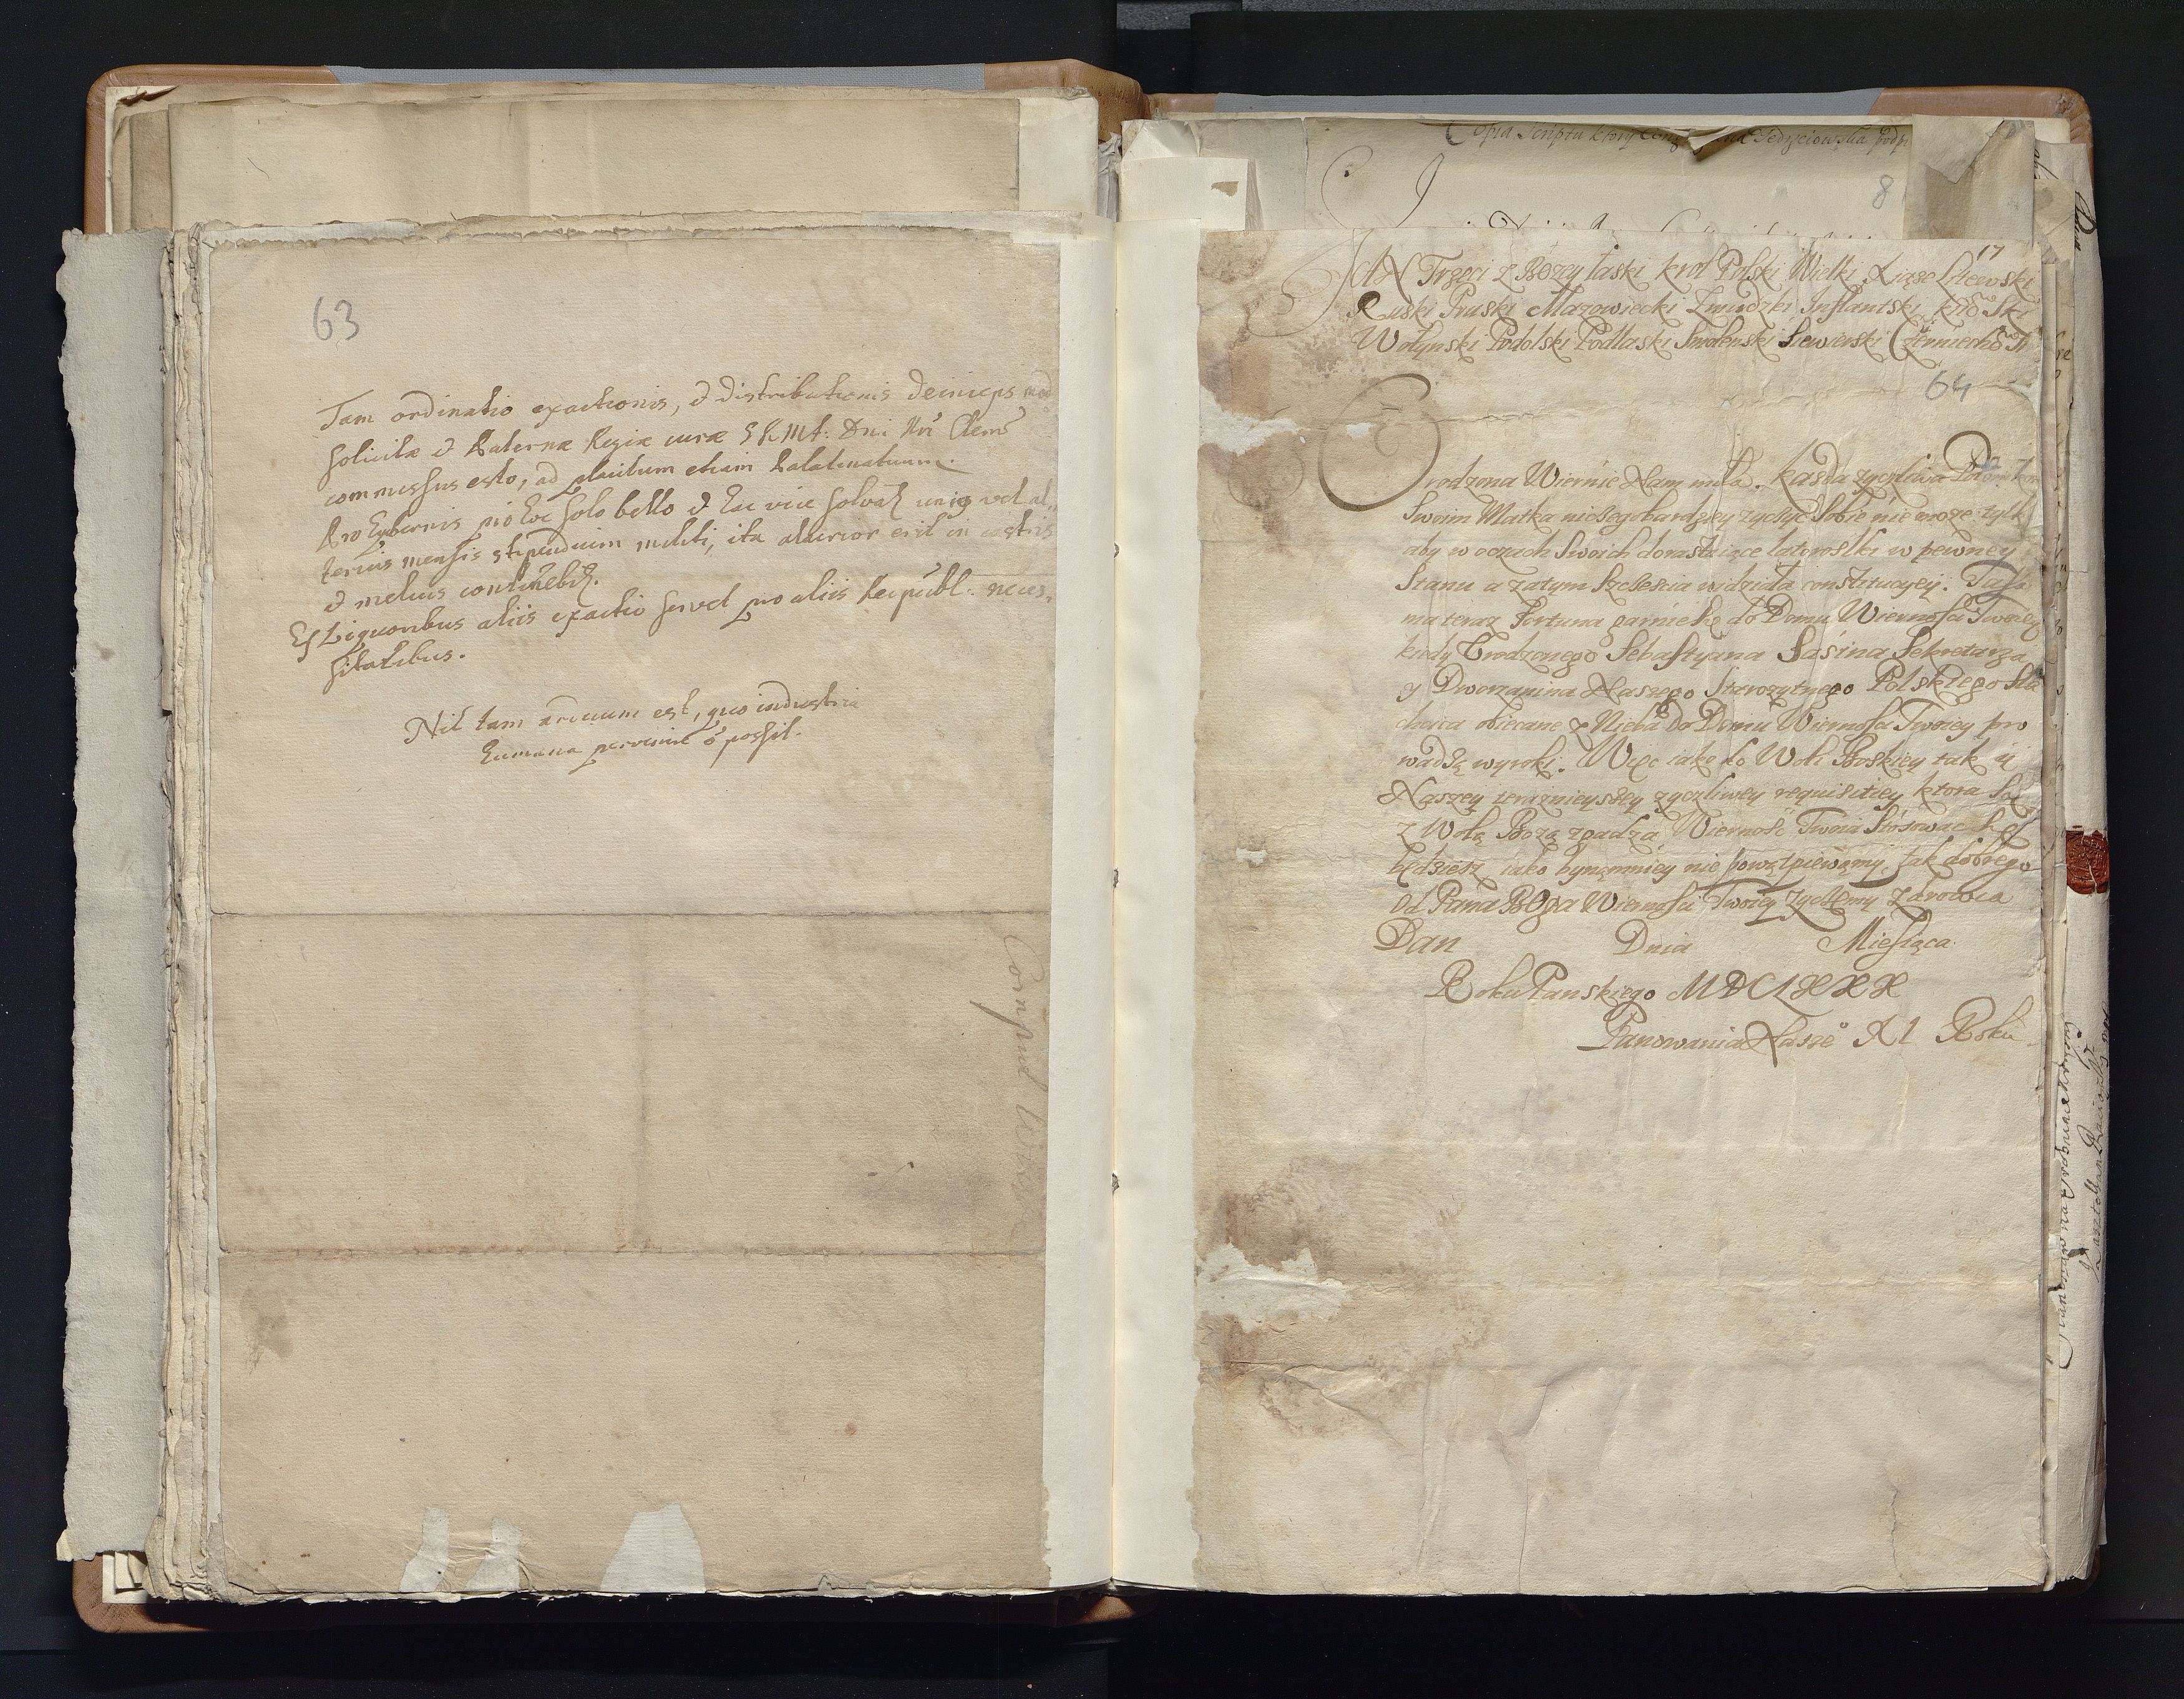 63
Jam ordinatio exactionis, & distributionis deinceps
solicitæ & Paternæ Regiæ curæ S R Mt: Dni Nri Clem
commissus esto, ad placitum etiam Palatinatuum.
Pro Hybernis pro hoc solo bello & hac vice solvat unig vel al
terius mensis stipendium militi, ita alacrior erit in castris
& melius continebit.
Ex Liquoribus aliis exactio servet pro aliis Reipubl: neces,
sitatibus.
Nil tam arduum est, quo industria
humana pervenire õ possit.
Copia Scriptu ktory
8
17
JAN Trzeci z Bozey łaski krol Polski Wielki Xiąze Litewski
Ruski Pruski Mazowiecki Zmudzki Inflantski
Wołynski Podolski Podlaski Smolenski Siewierski Czerniecho
64
Urodzona Wiernie Nam miła. Kazda zyczliwa
Swoim Matka niczego bardziey zyczyc sobie nie moze tylk
aby w oczach Swoich dorastaiące latoroslki w pewney
Stanu a zatym Szczescia widziała constitucyey. Taka
ma teraz Fortuna garnie się do Domu Wiernosci Twoiey
kiedy Urodzonego Sebastyana Sasina Sekretarza
y Dworzanina Naszego Starozytnego Polskiego Sla
chcica obiecane z Nieba do Domu Wiernosci Twoiey pro
wadzą wyroki. Więc iako do Woli Boskiey tak y
Naszey teraznieyszey zyczliwey requisitiey ktora się
z Wolą Bozą zgadza Wiernosc Twoia stosowac się
będziesz iako bynamniey nie powątpiewamy, tak dobrego
Od Pana BOga Wiernosci Twoiey zyczemy zdrowia
Dan Dnia Miesiąca
Roku Panskiego MDCLXXX
Panowania Nasze° XI Roku